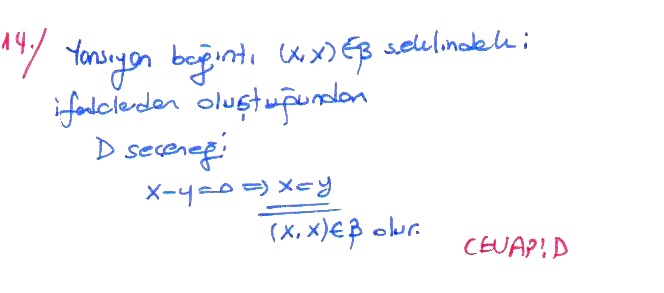 14./ Yansıyan bağıntı (x,x)∈β şeklindeki
ifadelerden oluştuğundan
D seçeneği
x-y=0 ⇒ x=y
(x,x)∈β olur.
CEVAP: D